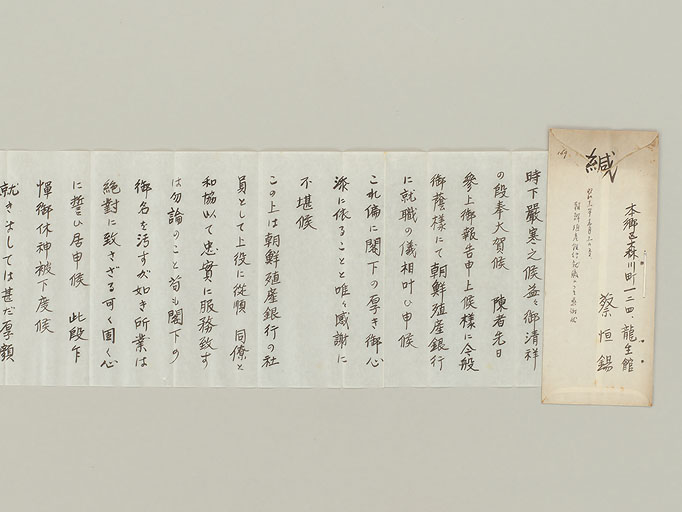 緘
本郷区森川町一二四、龍生館
蔡恒錫
時下嚴寒之候益々御清祥
の段奉大賀候 陳者先日
参上御報告申上候様に今般
御蔭様にて朝鮮殖産銀行
に就職の儀相叶ひ申候
これ偏に閣下の厚き御心
添に依ることと唯々感謝に
不堪候
この上は朝鮮殖産銀行の社
員として上役に從順 同僚と
和協以て忠實に服務致す
は勿論のこと苟も閣下の
御名を汚すが如き所業は
絶對に致さざる可く固く心
に誓ひ居申候 此段乍
憚御休神被下度候
就きましては甚だ厚顔